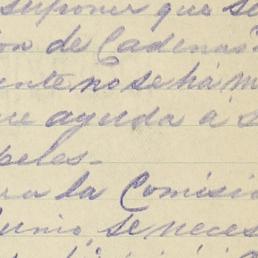 suponer que se
ion de Cadenas
ente no se há m
ue ayuda á s
peles.-
ra la Comisió
unio, se neces